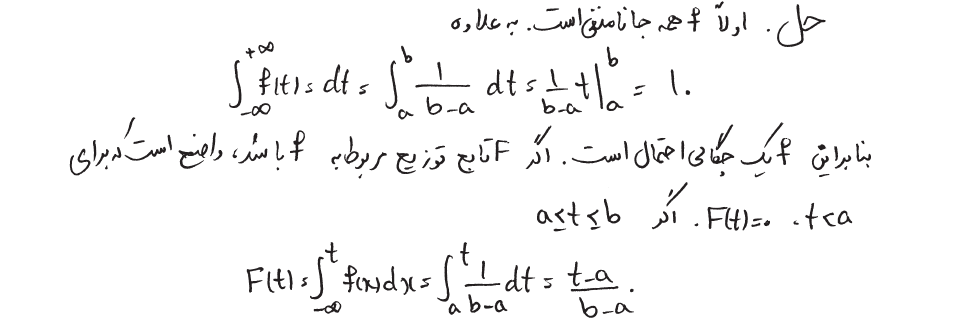 حل. اولاً f همه جا نامنفی است. به علاوه
∫_{-∞}^{+∞} f(t) = dt = ∫_a^b 1/(b-a) dt = 1/(b-a) t |_a^b = 1.
بنابراین f یک چگالی احتمال است. اگر F تابع توزیع مربوط به f باشد، واضح است که برای
t<a، F(t)=0. اگر a≤t≤b
F(t) = ∫_{-∞}^t f(x)dx = ∫_a^t 1/(b-a) dt = (t-a)/(b-a).